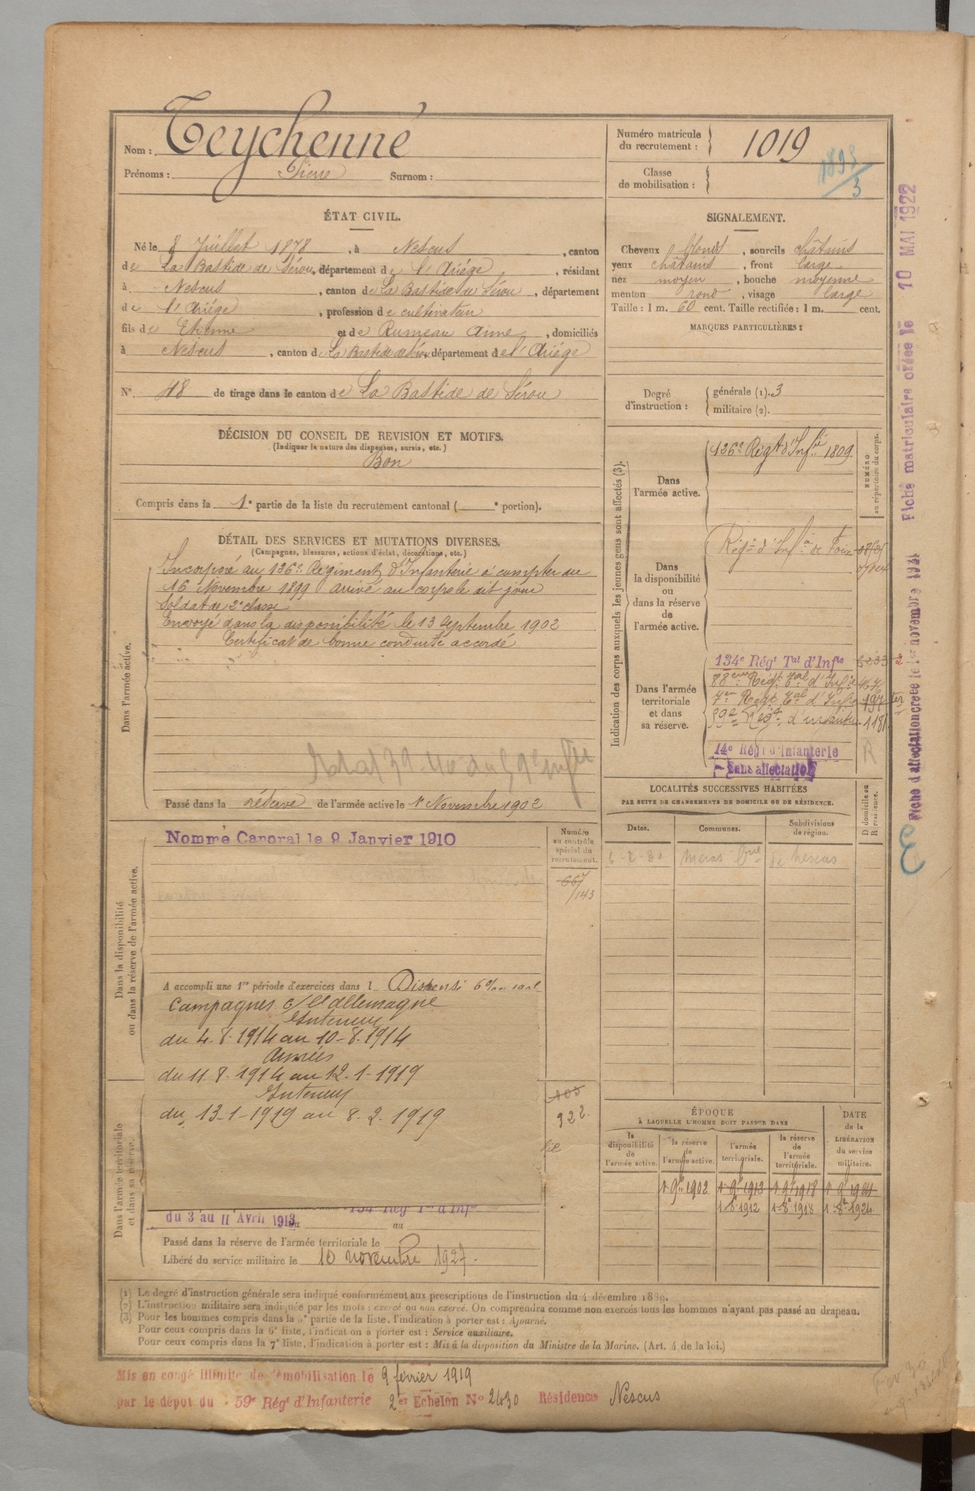 Nom : Teychenné
Prénoms : Pierre Surnom :
Numéro matricule du recrutement : 1019
Classe de mobilisation :
1898/3
ÉTAT CIVIL.
Né le 8 Juillet 1878, à Nescus, canton
de La Bastide de Sérou, département de l'Ariége, résidant
à Nescus, canton de La Bastide de Sérou, département
de l'Ariége, profession de cultivateur
fils de Etienne et de Rumeau Anne, domiciliés
à Nescus, canton de La Bastide de Sérou, département de l'Ariége
N° 48 de tirage dans le canton de La Bastide de Sérou
SIGNALEMENT.
Cheveux blonds, sourcils châtains
yeux châtains, front large
nez moyen, bouche moyenne
menton rond, visage large
Taille : 1 m. 60 cent. Taille rectifiée : 1 m. cent.
MARQUES PARTICULIÈRES :
Degré d'instruction : générale (1). 3
militaire (2).
DÉCISION DU CONSEIL DE REVISION ET MOTIFS.
(Indiquer la nature des dispenses, sursis, etc.)
Bon
Compris dans la 1e partie de la liste du recrutement cantonal ( e portion).
DÉTAIL DES SERVICES ET MUTATIONS DIVERSES.
(Campagnes, blessures, actions d'éclat, décorations, etc.)
Dans l'armée active.
Incorporé au 136e Régiment d'Infanterie à compter du
16 Novembre 1899 arrivé au corps le dit jour
Soldat de 2e classe
Envoyé dans la disponibilité le 13 Septembre 1902
Certificat de bonne conduite accordé
Passé dans la réserve de l'armée active le 1er Novembre 1902
Indication des corps auxquels les jeunes gens sont affectés (3).
NUMÉRO au répertoire du corps.
Dans l'armée active.
136e Régt d'Infie 1809
Dans la disponibilité ou dans la réserve de l'armée active.
Régt d'Infie de Foix
Dans l'armée territoriale et dans sa réserve.
134e Régt Tal d'Infie
14e Régt d'Infanterie
Sans affectation
R
LOCALITÉS SUCCESSIVES HABITÉES
PAR SUITE DE CHANGEMENTS DE DOMICILE OU DE RÉSIDENCE.
Dates. Communes. Subdivisions de région. D domicile ou R résidence.
Dans la disponibilité ou dans la réserve de l'armée active.
Nommé Caporal le 9 Janvier 1910
Numéro au contrôle spécial du recrutement.
667
143
A accompli une 1re période d'exercices dans l
Campagnes c/ l'allemagne
Intérieur
du 4.8.1914 au 10-8.1914
Armées
du 11.8.1914 au 12.1-1919
Intérieur
du 13-1-1919 au 8-2.1919
922.
Dans l'armée territoriale et dans sa réserve.
134e Régt Tal d'Infie
du 3 au 11 Avril 1913
au
Passé dans la réserve de l'armée territoriale le
Libéré du service militaire le 10 novembre 1927.
ÉPOQUE
À LAQUELLE L'HOMME DOIT PASSER DANS
DATE de la LIBÉRATION du service militaire.
la disponibilité de l'armée active. la réserve de l'armée active. l'armée territoriale. la réserve de l'armée territoriale.
(1) Le degré d'instruction générale sera indiqué conformément aux prescriptions de l'instruction du 4 décembre 1889.
(2) L'instruction militaire sera indiquée par les mots : exercé ou non exercé. On comprendra comme non exercés tous les hommes n'ayant pas passé au drapeau.
(3) Pour les hommes compris dans la 5e partie de la liste, l'indication à porter est : Ajourné.
Pour ceux compris dans la 6e liste, l'indication à porter est : Service auxiliaire.
Pour ceux compris dans la 7e liste, l'indication à porter est : Mis à la disposition du Ministre de la Marine. (Art. 4 de la loi.)
Mis en congé illimité de démobilisation le 9 février 1919
par le dépôt du 59e Régt d'Infanterie 2e Echelon No 2430 Résidence Nescus
Fiche matriculaire créée le 10 MAI 1922
Fiche d'affectation créée le 1er novembre 1921